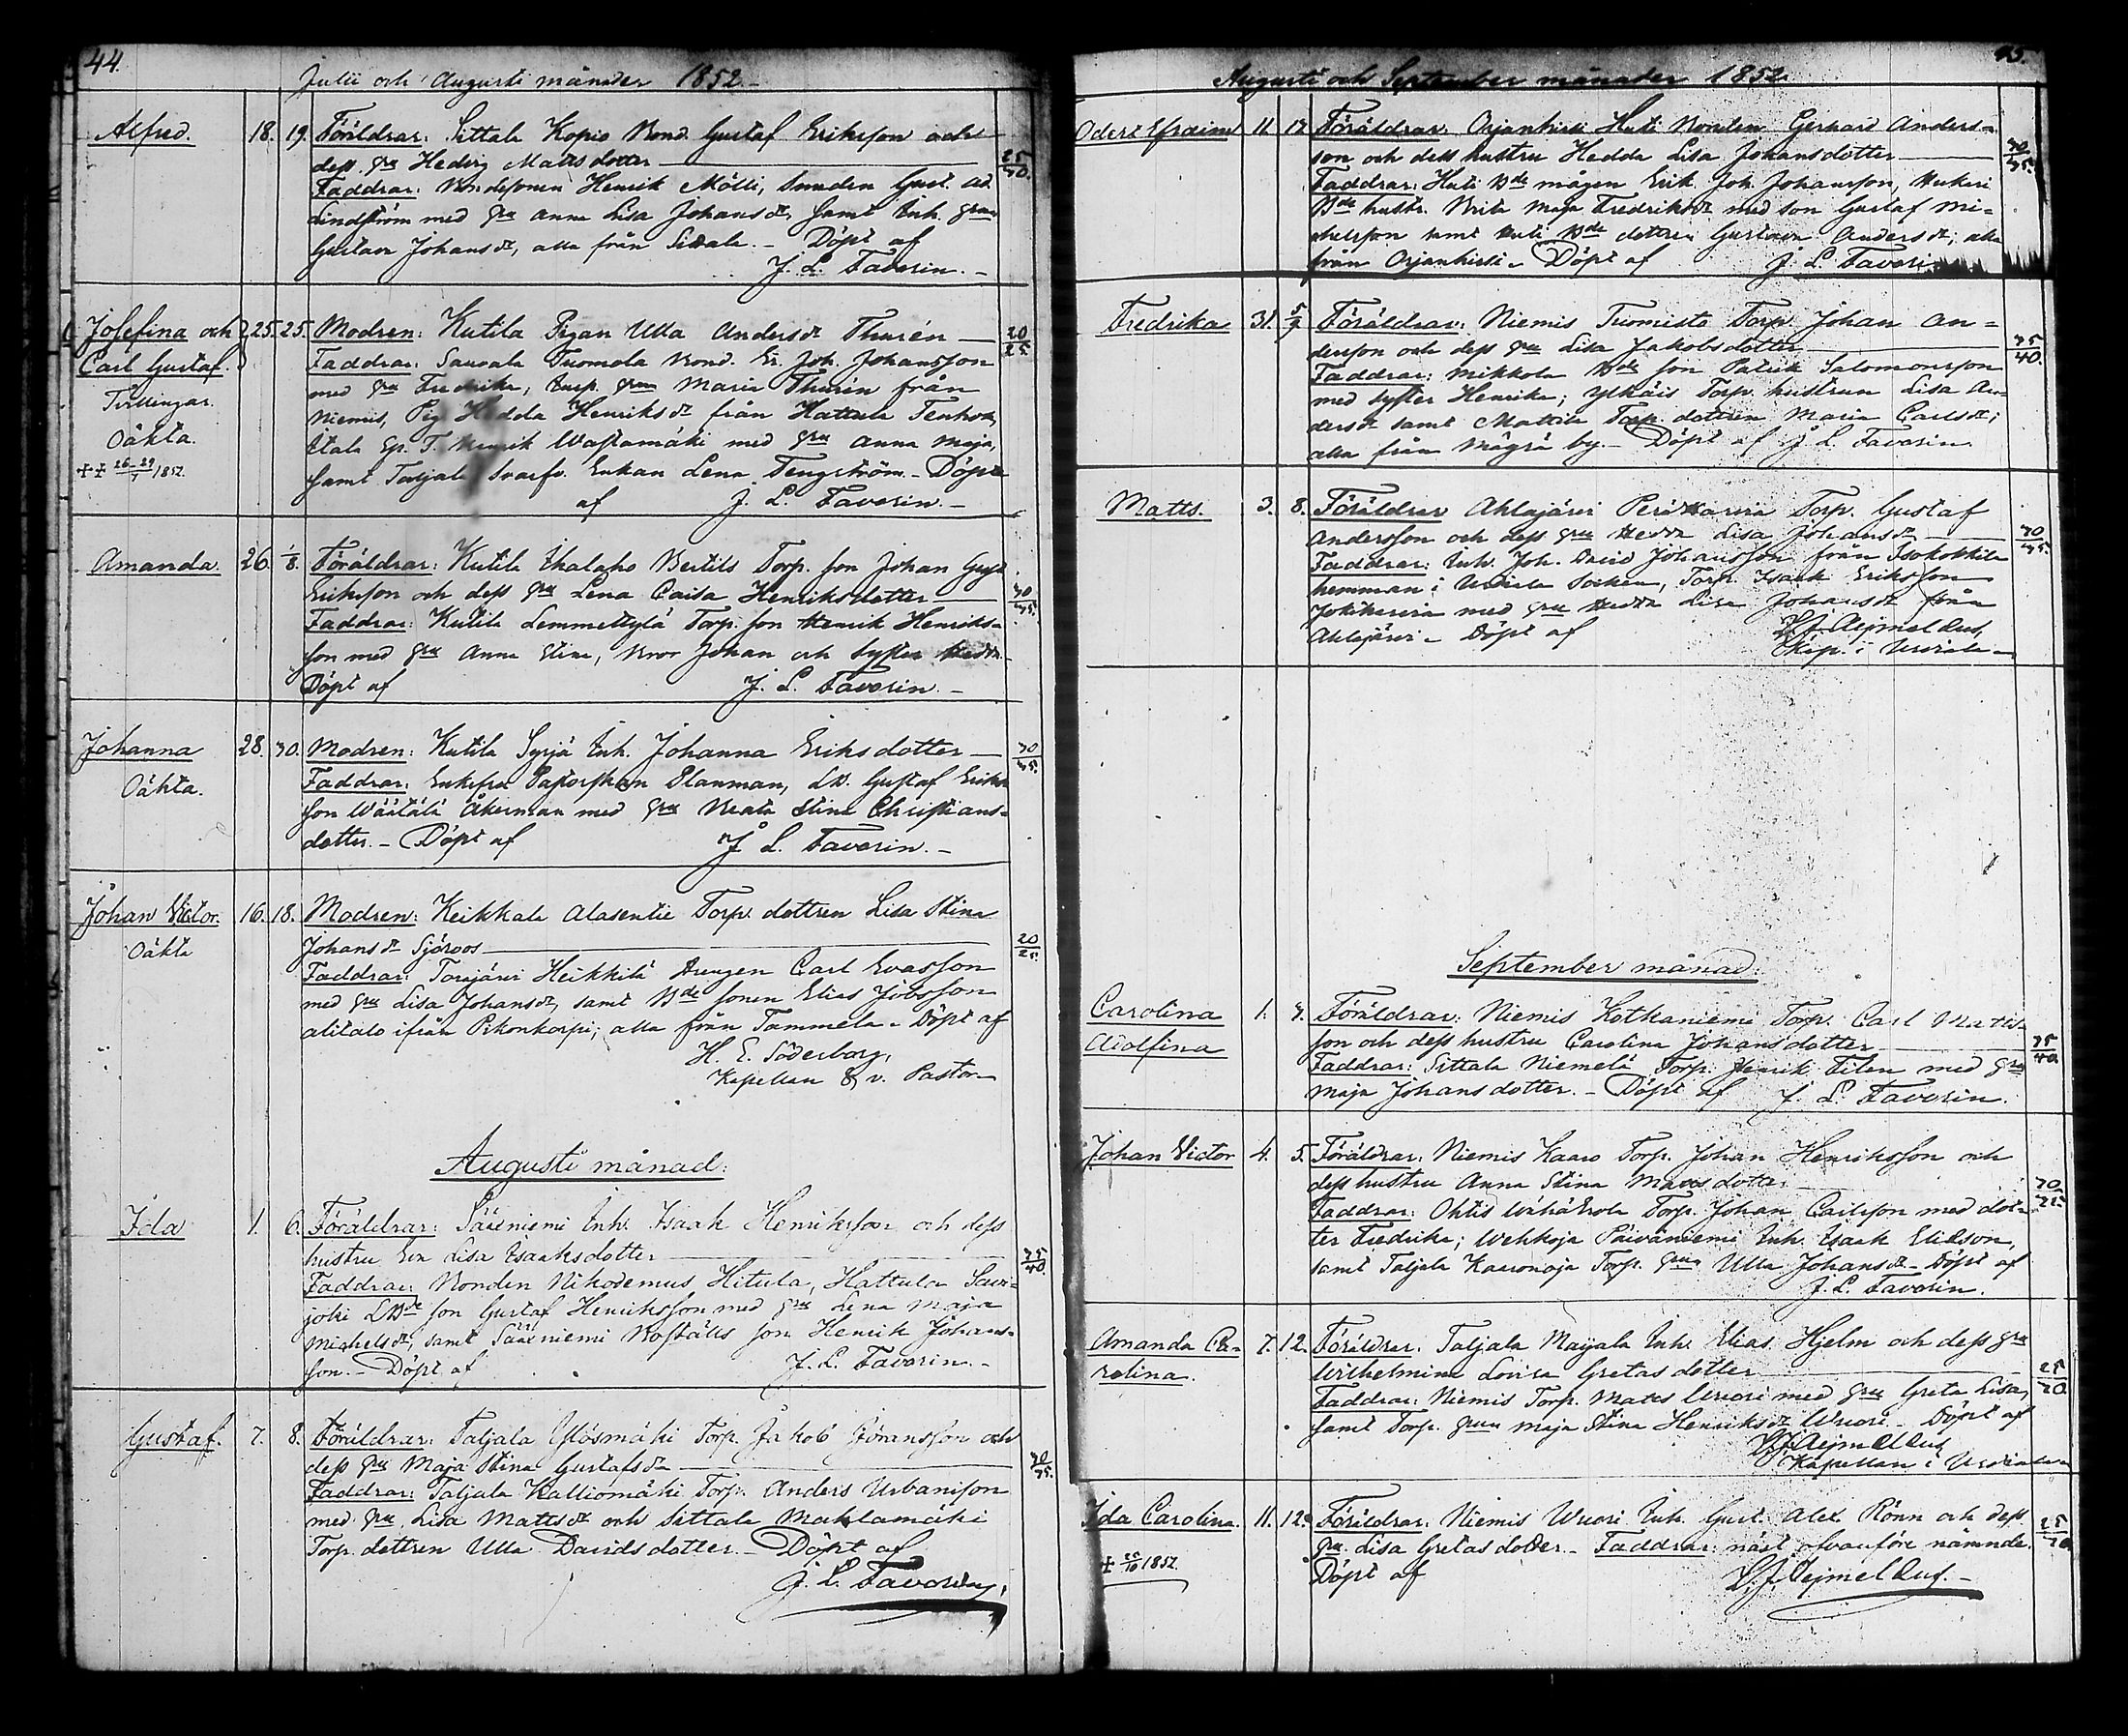 44.
Julii och Augusti månader 1852.-
Alfred. 18. 19. Föräldrar: Sittala Kopio Bond. Gustaf Eriksson och
dess hu Hedvig Mattsdotter 25/30.
Faddrar: Bondesonen Henrik Mölli, Smeden Gust. Ad.
Lindström med hu Anna Lisa Johansdr, samt Inh. hun
Gustava Johansdr, alla från Sittala.- Döpt af
J. L. Favorin.-
Josefina och 25. 25. Modren: Kutila Pigan Ulla Andersdr Thurén 20/25
Carl Gustaf. Faddrar: Sauvala Tuomola Bond. Er. Joh. Johansson
Tvillingar. med hu Fredrika, Insp. hun Maria Thurén från
Oäkta. Niemis, Pig. Hedda Henriksdr från Hattula Tenhola
Itala T. Henrik Wastamäki med hu Anna Maja,
samt Taljala Svarfv. Enkan Lena Tengström.- Döpte
af J. L. Favorin.-
Amanda 26. 1/8. Föräldrar: Kutila Ihalaho Bertils Torp. son Johan Gust.
Eriksson och dess hu Lena Caisa Henriksdotter 30/35.
Faddrar: Kutila Lemmettylä Torp. son Henrik Henriks-
son med hu Anna Stina, Bror Johan och Syster Hedda.
Döpt af J. L. Favorin.-
Johanna 28. 30. Modren: Kutila Syrjä Inh. Johanna Eriksdotter 30/35.
Oäkta. Faddrar: Enkefru Pastorskan Planman, LB. Gustaf Eriks-
son Wäätälä Åkerman med hu Beata Stina Christians-
dotter.- Döpt af J. L. Favorin.-
Johan Victor. 16. 18. Modren: Keikkala Alasentie Torp. dottren Lisa Stina
Oäkta Johansdr Sjöroos 20/25.
Faddrar: Torajärvi Heikkilä Drengen Carl Evasson
med hu Lisa Johansdr, samt Bde sonen Elias Jobsson
Alitalo ifrån Pikonkorpi; alla från Tammela.- Döpt af
H. E. Söderborg,
Kapellan & v. Pastor.
Augusti månad:
Ida 1. 6. Föräldrar: Sääxniemi Inh. Isaak Henriksson och dess
hustru Eva Lisa Isaaksdotter 35/40.
Faddrar: Bonden Nikodemus Hitula, Hattula Savi-
joki LBde son Gustaf Henriksson med hu Lena Maja
Michelsdr, samt Sääxniemi Boställs son Henrik Johans-
son.- Döpt af J. L. Favorin.-
Gustaf. 7. 8. Föräldrar: Taljala Ylösmäki Torp. Jakob Göransson och
dess hu Maja Stina Gustafsdr 30/35.
Faddrar: Taljala Kalliomäki Torp. Anders Urbansson
med hu Lisa Mattsdr och Sittala Mahlamäki
Torp. dottren Ulla Davidsdotter.- Döpt af
J. L. Favorin.
45.
Augusti och September månader 1852.
Odert Efraim 11. 12. Föräldrar: Orjanhirsi Huti Bonden Gerhard Anders-
son och dess hustru Hedda Lisa Johansdotter 30/35.
Faddrar: Huti Bde mågen Erik Joh. Johansson,
Bde hustr. Brita Maja Fredriksdr med son Gustaf Mi-
chelsson samt Huti Bde dottren Gustava Andersdr; alla
från Orjanhirsi.- Döpt af J. L. Favorin
Fredrika 31. 5/9 Föräldrar: Niemis Tuomisto Torp. Johan An-
dersson och dess hu Lisa Jakobsdotter 35/40.
Faddrar: Mikkola Bde son Patrik Salomonsson
med syster Henrika; Torp. hustrun Lisa An-
dersdr samt Mattila Torp. dottren Maria Carlsdr;
alla från Mägrä by.- Döpt af J. L. Favorin
Matts. 3. 8. Föräldrar Ahlajärvi Perä Torp. Gustaf
Andersson och dess hu Hedda Lisa Johansdr 30/35.
Faddrar: Inh. Joh. David Johansson från Isokokkila
hemman i Urdiala Socken, Torp. Isaak Eriksson
med hu Hedda Lisa Johansdr från
Ahlajärvi.- Döpt af Aejmelæus,
Kap. i Urdiala
September månad:
Carolina 1. 4. Föräldrar: Niemis Kotkaniemi Torp. Carl Matts-
Adolfina son och dess hustru Carolina Johansdotter 35/40.
Faddrar: Sittala Niemelä Torp. Henrik Filen med hu
Maja Johansdotter.- Döpt af J. L. Favorin.
Johan Victor 4. 5. Föräldrar: Niemis Kaaro Torp. Johan Henriksson och
dess hustru Anna Stina Mattsdotter 30/35.
Faddrar: Ohtis Torp. Johan Carlsson med dot-
ter Fredrika; Wehkoja Päiväniemi Inh. Isaak Eliasson,
samt Taljala Kaaronoja Torp. hun Ulla Johansdr.- Döpt af
J. L. Favorin.
Amanda Ca- 7. 12. Föräldrar: Taljala Maijala Inh. Elias Hjelm och dess hu
rolina. Wilhelmina Lovisa Gretasdotter 25/30
Faddrar: Niemis Torp. Matts Wuori med hu Greta Lisa,
samt Torp. hun Maja Stina Henriksdr Wuori.- Döpt af
Aejmelæus
Kapellan i Urdiala
Ida Carolina. 11. 12. Föräldrar: Niemis Wuori Inh. Gust. Alex. Rönn och dess 25/30
hu Lisa Gretasdotter.- Faddrar: näst ofvanföre nämnde.
Döpt af Aejmelæus.-